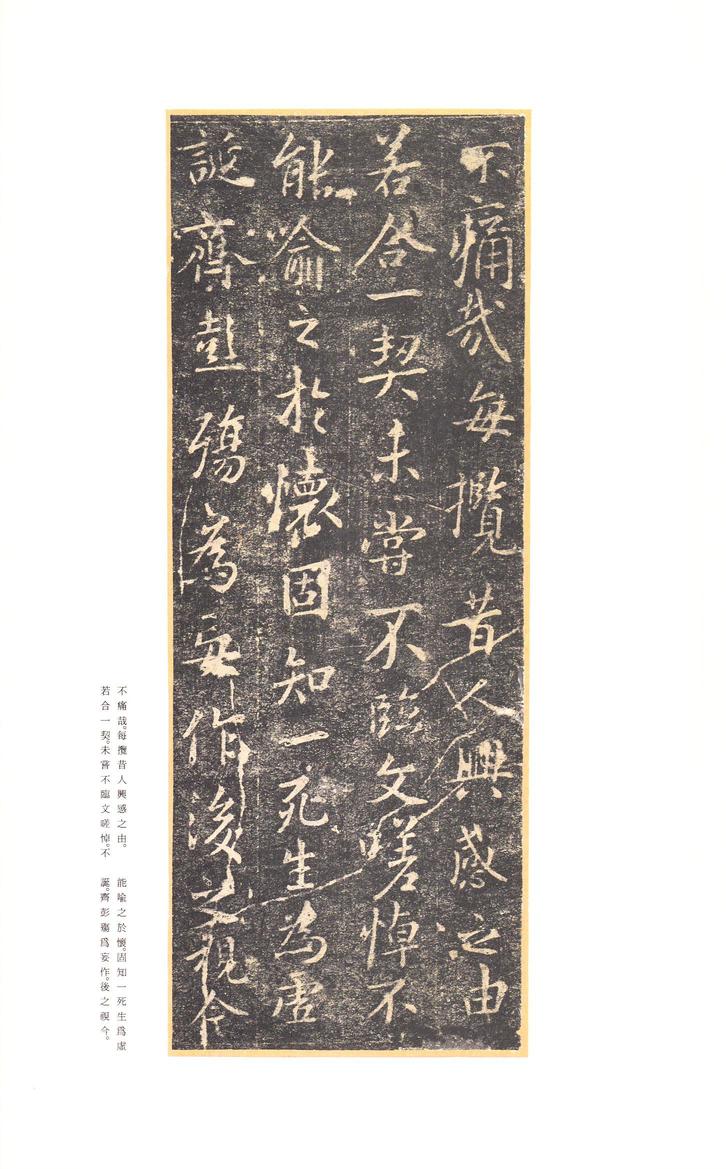 不痛哉每攬昔人興感之由
若合一契未嘗不臨文嗟悼不
能喻之於懷固知一死生為虛
誕齊彭殤為妄作後之視今
不痛哉。每攬昔人興感之由。
若合一契。未嘗不臨文嗟悼。不
能喻之於懷。固知一死生爲虛
誕。齊彭殤爲妄作。後之視今。